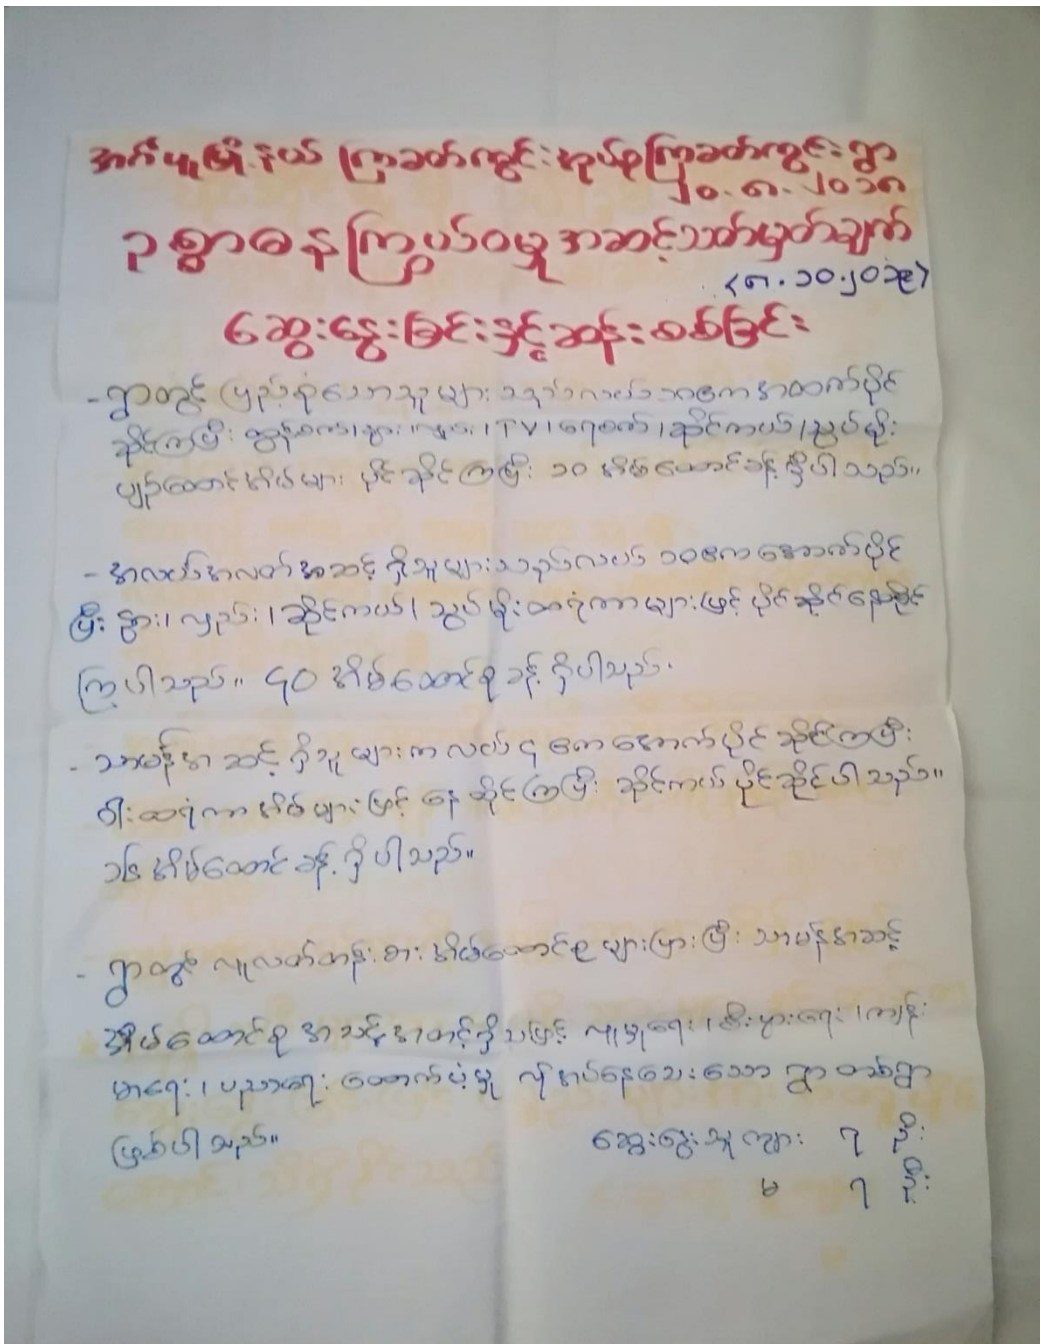 အင်္ဂပူမြို့နယ် ကြာခတ်ကွင်းအုပ်စု ကြာခတ်ကွင်းရွာ
၂၀.၈.၂၀၁၈
ဥစ္စာဓန ကြွယ်ဝမှု အဆင့်သတ်မှတ်ချက်
ဆွေးနွေးခြင်းနှင့် ဆန်းစစ်ခြင်း
- ရွာတွင် ပြည့်စုံသောသူများသည် လယ် ၁၀ဧကအထက်ပိုင်
ဆိုင်ကြပြီး ထွန်စက်၊ နွား၊ လှည်း၊ TV၊ ရေစက်၊ ဆိုင်ကယ်၊ သွပ်မိုး
ပျဉ်ထောင်အိမ်များ ပိုင်ဆိုင်ကြပြီး ၁၀ အိမ်ထောင်ခန့် ရှိပါသည်။
- အလယ်အလတ်အဆင့် ရှိသူများသည် လယ် ၁၀ဧကအောက်ပိုင်
ပြီး နွား၊ လှည်း၊ ဆိုင်ကယ်၊ သွပ်မိုးထရံကာများဖြင့် ပိုင်ဆိုင်နေထိုင်
ကြပါသည်။ ၄၀ အိမ်ထောင်စုခန့် ရှိပါသည်.
- သာမန်အဆင့် ရှိသူများက လယ် ၄ ဧကအောက်ပိုင်ဆိုင်ကြပြီး
ဝါးထရံကာအိမ်များဖြင့် နေထိုင်ကြပြီး ဆိုင်ကယ် ပိုင်ဆိုင်ပါသည်။
အိမ်ထောင်ခန့် ရှိပါသည်။
- ရွာတွင် လူလတ်တန်းစား အိမ်ထောင်စု များပြားပြီး သာမန်အဆင့်
အိမ်ထောင်စု အသင့်အတင့်ရှိသဖြင့် လူမှုရေး၊ စီးပွားရေး၊ ကျန်း
မာရေး၊ ပညာရေး ထောက်ပံ့မှု လိုအပ်နေသေးသော ရွာတစ်ရွာ
ဖြစ်ပါသည်။
ဆွေးနွေးသူ ကျား ၇ ဦး
မ ၇ ဦး